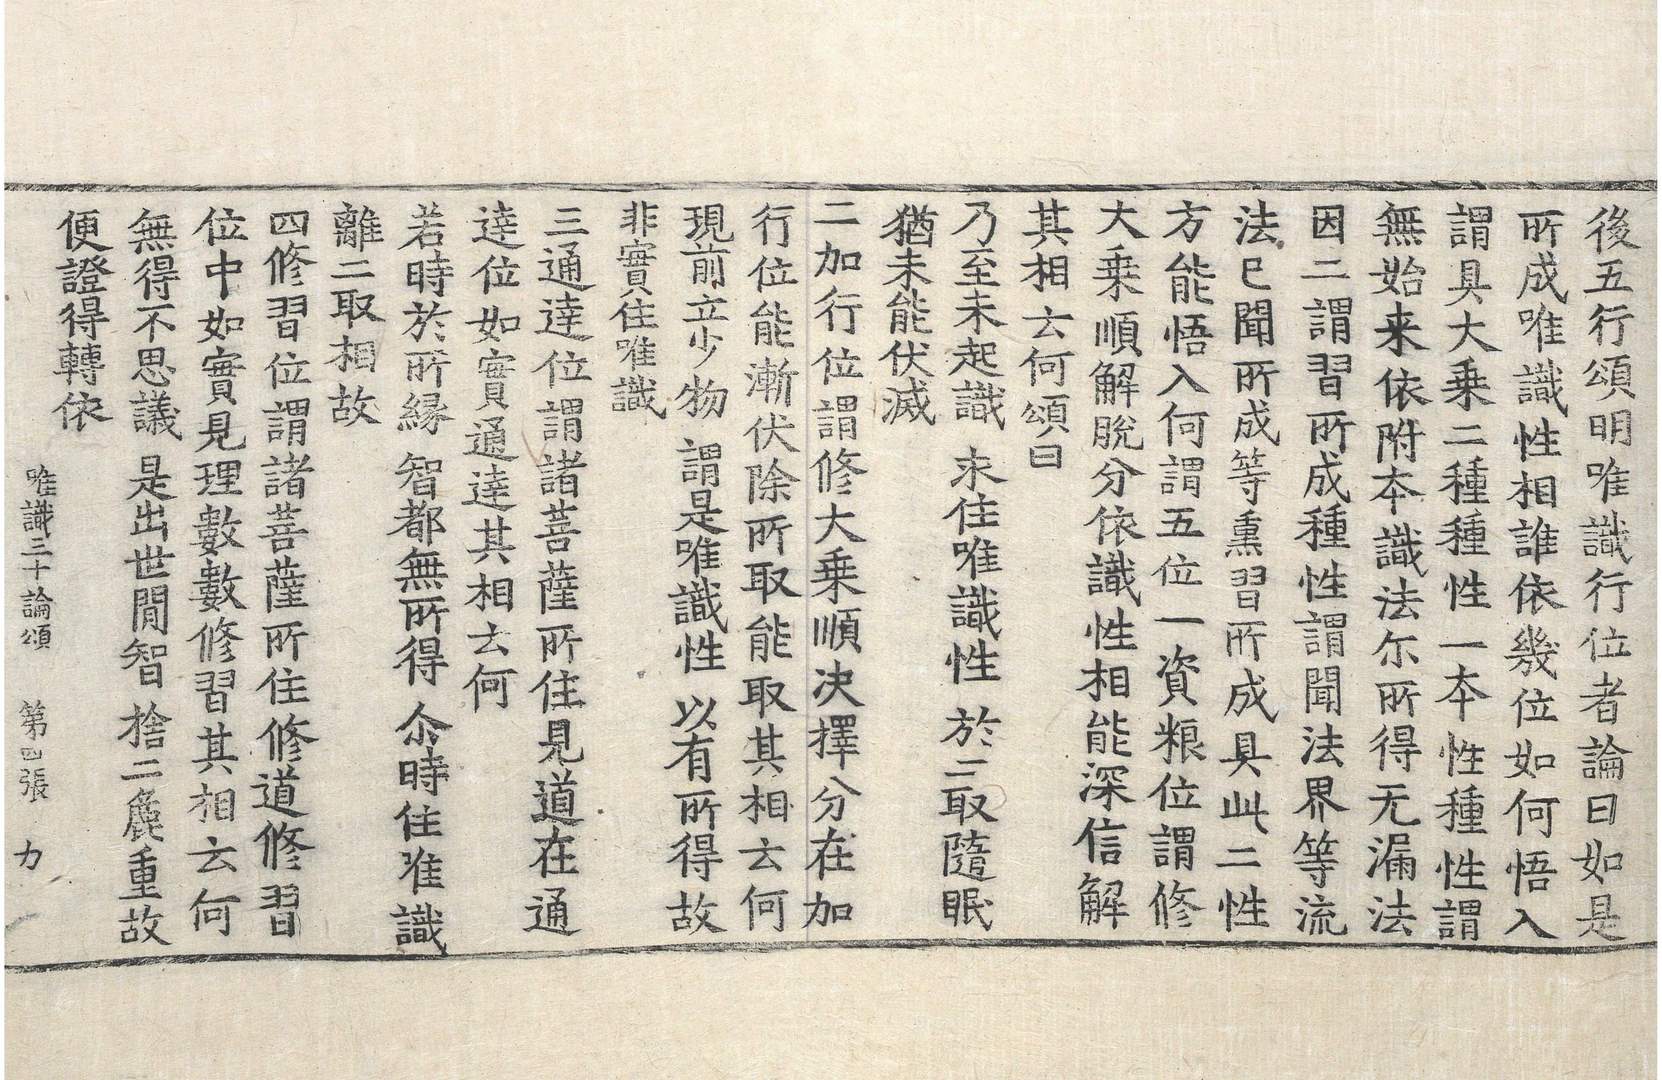 後五行頌明唯識行位者論曰如是
所成唯識性相誰依幾位如何悟入
謂具大乗二種種性一本性種性謂
無始来依附本識法尒所得无漏法
因二謂習所成種性謂聞法界等流
法已聞所成等熏習所成具此二性
方能悟入何謂五位一資粮位謂修
大乗順解脫分依識性相能深信解
其相云何頌曰
乃至未起識 求住唯識性 於二取隨眠
猶未能伏滅
二加行位謂修大乗順决擇分在加
行位能漸伏除所取能取其相云何
現前立少物 謂是唯識性 以有所得故
非實住唯識
三通達位謂諸菩薩所住見道在通
達位如實通達其相云何
若時於所縁 智都無所得 尒時住唯識
離二取相故
四修習位謂諸菩薩所住修道修習
位中如實見理數數修習其相云何
無得不思議 是出世間智 捨二麁重故
便證得轉依
唯識三十論頌 第四張 力